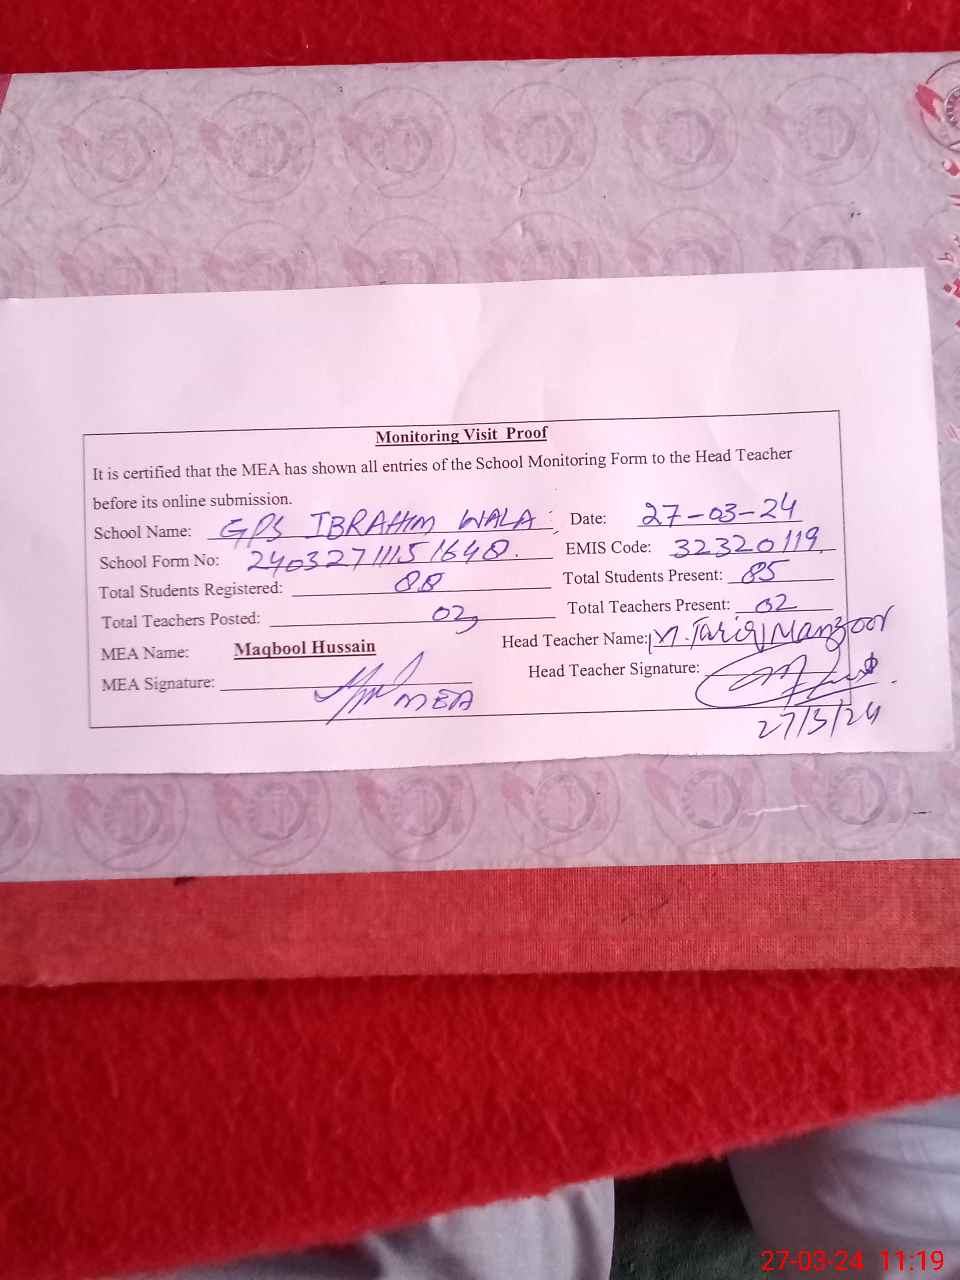 Monitoring Visit Proof
It is certified that the MEA has shown all entries of the School Monitoring Form to the Head Teacher
before its online submission.
School Name: GPS IBRAHIM WALA Date: 27-03-24
School Form No: 24032711151648. EMIS Code: 32320119
Total Students Registered: 88 Total Students Present: 85
Total Teachers Posted: 02 Total Teachers Present: 02
MEA Name: Maqbool Hussain Head Teacher Name: M. Tariq Manzoor
MEA Signature: MEA Head Teacher Signature:
27/3/24
27-03-24 11:19